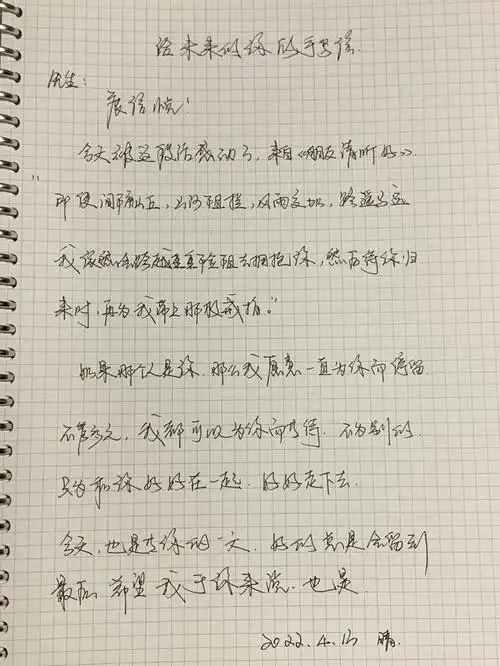 给未来的你的手写信
先生:
展信悦!
今天被这段话感动了,来自《朋友请听好》.
"即使间隔山丘,山河阻拦,风雨交加,路遥马远
我依然会跨越 去拥抱你,然后待你归
来时,再为我带上那枚戒指。"
如果那个人是你.那么我愿意一直为你而停留.
不管多久,我都可以为你而等待.不为别的.
只为和你好好在一起.好好走下去.
今天,也是 你的一天.好的总是会留到
最后.希望我于你来说.也是.
2022.4.13 晴.